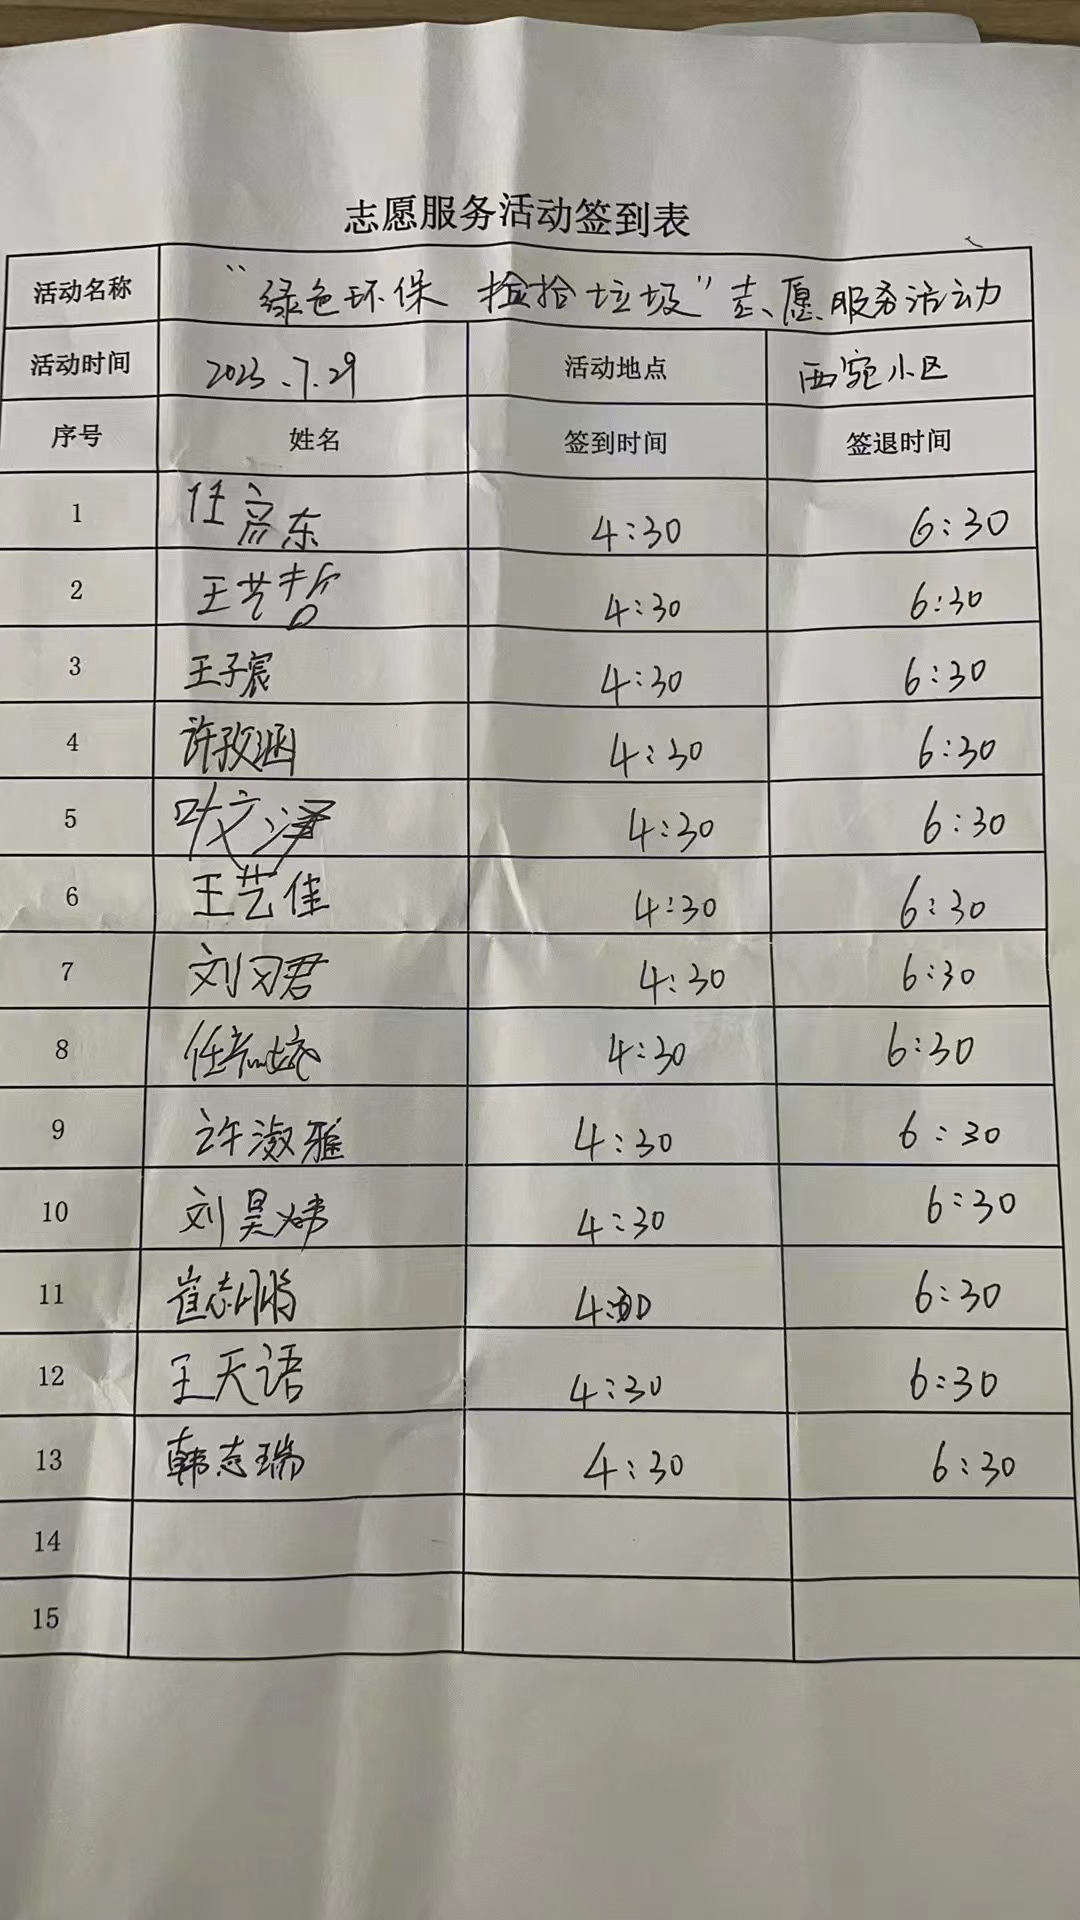 志愿服务活动签到表
活动名称 “绿色环保 捡拾垃圾”志愿服务活动
活动时间 2023.7.29 活动地点 西宛小区
序号 姓名 签到时间 签退时间
1 任彦东 4:30 6:30
2 王艺哲 4:30 6:30
3 王子宸 4:30 6:30
4 许孜涵 4:30 6:30
5 叶文泽 4:30 6:30
6 王艺佳 4:30 6:30
7 刘习君 4:30 6:30
8 任 4:30 6:30
9 许淑雅 4:30 6:30
10 刘昊炜 4:30 6:30
11 崔志鹏 4:30 6:30
12 王天语 4:30 6:30
13 韩志瑞 4:30 6:30
14
15